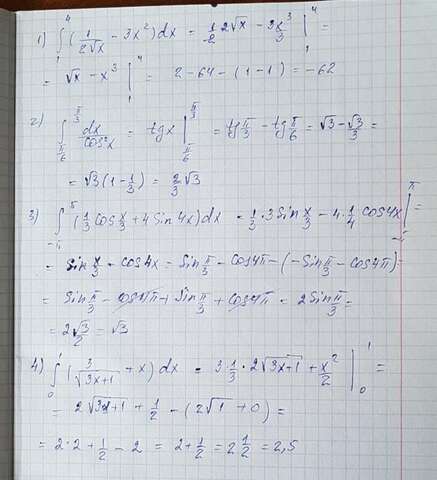 1) ∫₁⁴ (1/(2√x) - 3x²)dx = 1/2 2√x - 3x³/3 |₁⁴ =
= √x - x³ |₁⁴ = 2-64-(1-1) = -62
2) ∫_{π/6}^{π/3} dx/cos²x = tgx |_{π/6}^{π/3} = tg π/3 - tg π/6 = √3 - √3/3 =
= √3(1-1/3) = 2/3 √3
3) ∫_{-π}^{π} (1/3 cos x/3 + 4 sin 4x)dx = 1/3 · 3 sin x/3 - 4 · 1/4 cos 4x |_{-π}^{π} =
= sin x/3 - cos 4x = sin π/3 - cos 4π - (-sin π/3 - cos 4π) =
= sin π/3 - cos 4π + sin π/3 + cos 4π = 2 sin π/3 =
= 2√3/2 = √3
4) ∫₀¹ (3/√(3x+1) + x) dx = 3 1/3 · 2√(3x+1) + x²/2 |₀¹ =
= 2√(3·1+1) + 1/2 - (2√1 + 0) =
= 2·2 + 1/2 - 2 = 2 + 1/2 = 2 1/2 = 2,5